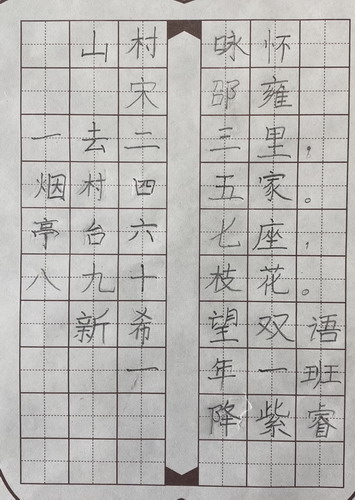 山村咏怀
宋邵雍
一去二三里，
烟村四五家。
亭台六七座，
八九十枝花。
新希望双语
一年一班
降紫睿